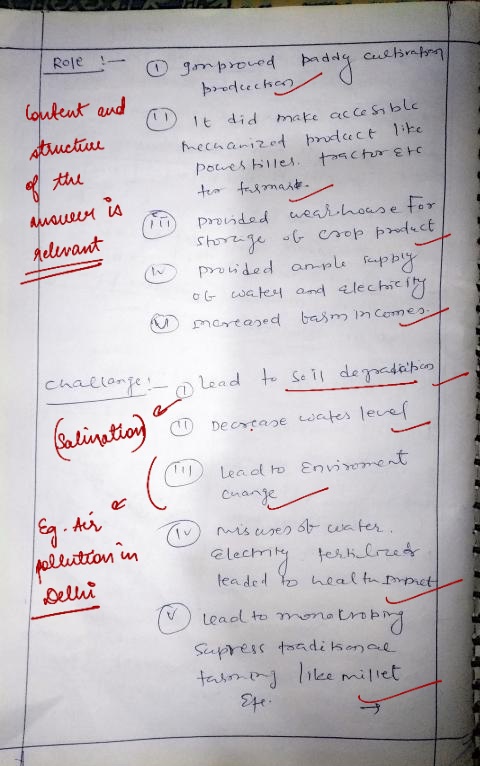 Role :-
(i) Improved paddy cultivation
production
(ii) It did make accesible
mechanized product like
powertiller. tractor etc
for farmar.
(iii) provided wearhouse for
storage of crop product
(iv) provided ample supply
of water and electricity
(v) increased farm incomes.
Content and
structure
of the
answer is
relevant
Challange :-
(i) lead to soil degradation
(ii) Decrease water level
(iii) Lead to Enviroment
change
(iv) misuses of water.
Electrity fertilizer
leaded to health impact
(v) lead to monocroping
supress traditional
farming like millet
Etc.
(Salination)
Eg. Air
pollution in
Delhi